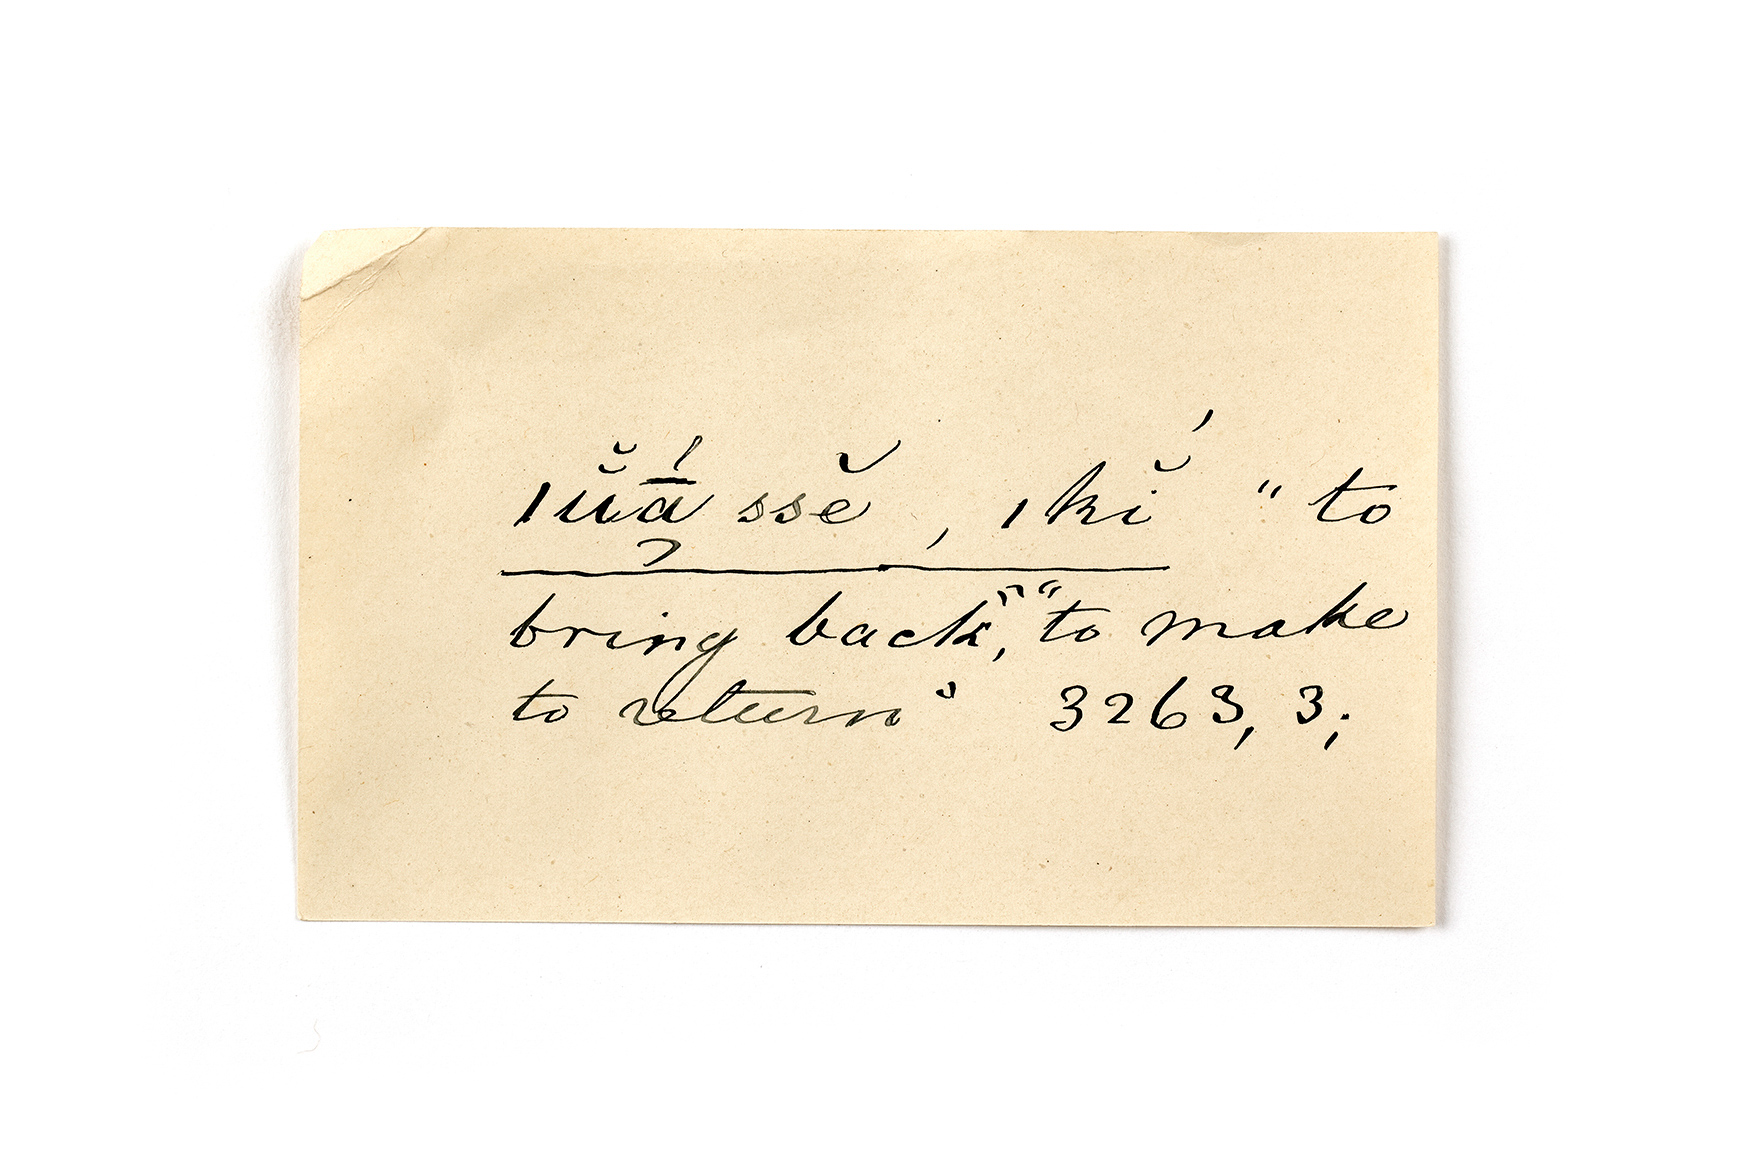 ıŭā́ ssĕ , ıkĭ́ "to
bring back," "to make
to return" 3263, 3;